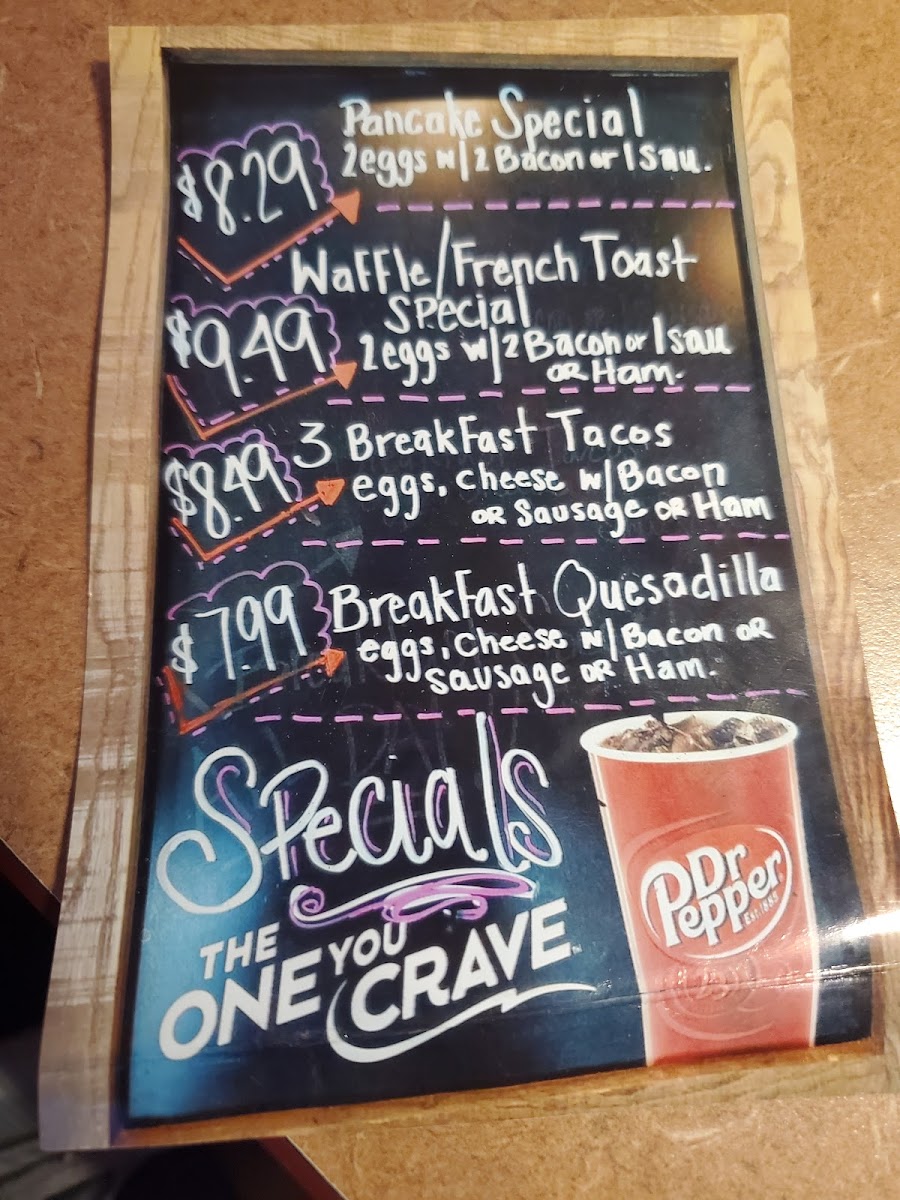 Pancake Special
$8.29
2 eggs w/ 2 Bacon or 1 sau.
Waffle/French Toast
Special
$9.49
2 eggs w/ 2 Bacon or 1 sau
or Ham.
$8.49
3 Breakfast Tacos
eggs, cheese w/ Bacon
or Sausage or Ham
$7.99
Breakfast Quesadilla
eggs, cheese w/ Bacon or
Sausage or Ham.
Specials
THE
ONE YOU
CRAVE™
Dr
Pepper
Est. 1885
(23)